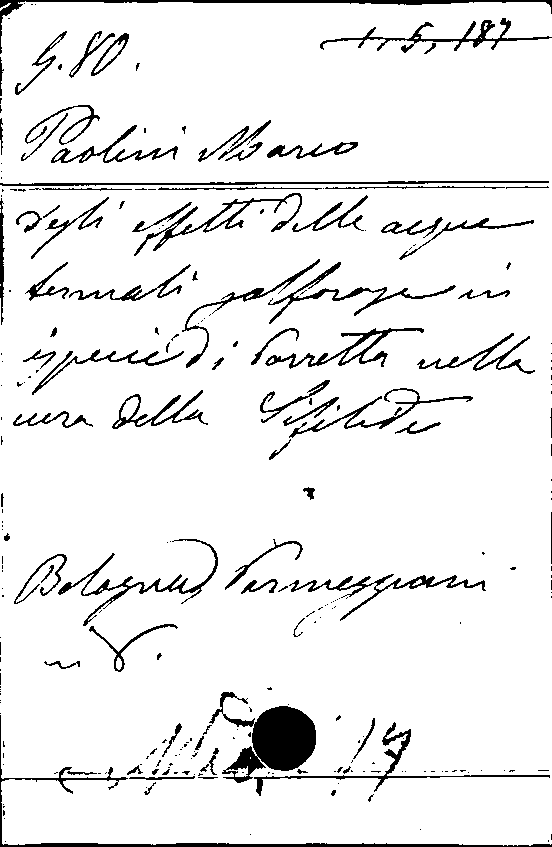 G. 80.
1, 5, 187
Paolini Marco
Degli effetti delle acque
termali solforose in
ispecie di Porretta nella
cura della Sifilide
Bologna, Parmeggiani
in 8.